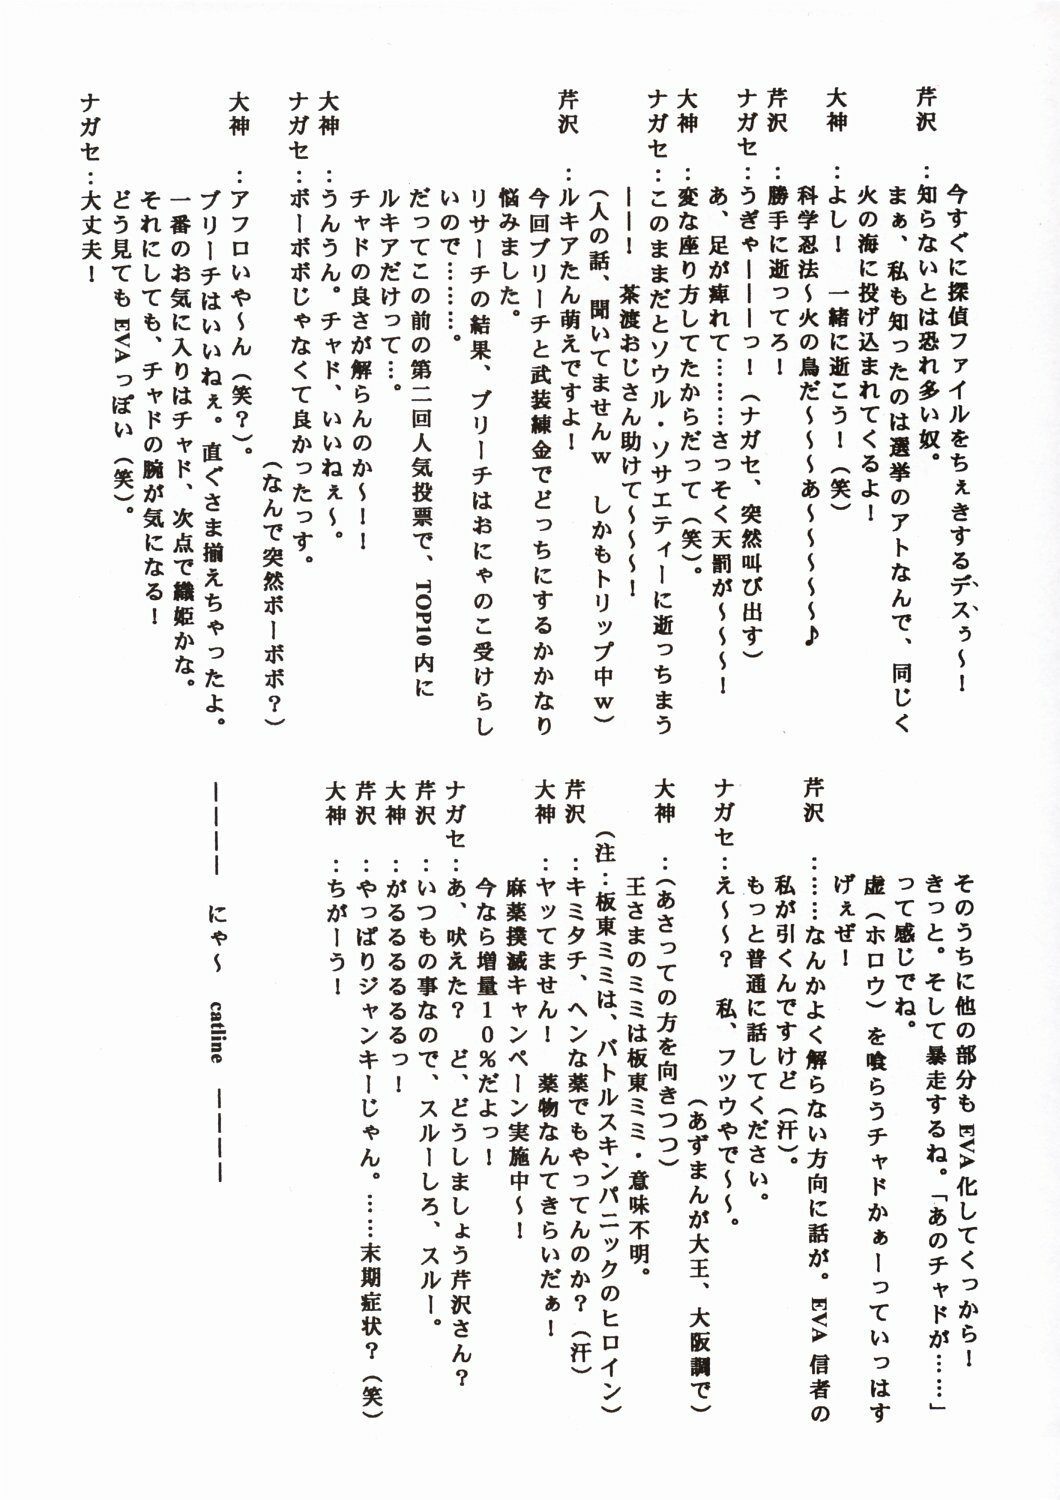 今すぐに探偵ファイルをちぇきするデス、ぅ～！
芹沢　：知らないとは恐れ多い奴。
まぁ、私も知ったのは選挙のアトなんで、同じく
火の海に投げ込まれてくるよ！
大神　：よし！　一緒に逝こう！（笑）
科学忍法～火の鳥だ～～～あ～～～～～♪
芹沢　：勝手に逝ってろ！
ナガセ：うぎゃーーーーっ！（ナガセ、突然叫び出す）
あ、足が痺れて………さっそく天罰が～～～！
大神　：変な座り方してたからだって（笑）。
ナガセ：このままだとソウル・ソサエティーに逝っちまう
ーーー！　茶渡おじさん助けて～～～！
（人の話、聞いてませんｗ　しかもトリップ中ｗ）
芹沢　：ルキアたん萌えですよ！
今回ブリーチと武装練金でどっちにするかかなり
悩みました。
リサーチの結果、ブリーチはおにゃのこ受けらし
いので………。
だってこの前の第二回人気投票で、TOP10 内に
ルキアだけって…。
チャドの良さが解らんのか～！！
大神　：うんうん。チャド、いいねぇ～。
ナガセ：ボーボボじゃなくて良かったっす。
（なんで突然ボーボボ？）
大神　：アフロいや～ん（笑？）。
ブリーチはいいねぇ。直ぐさま揃えちゃったよ。
一番のお気に入りはチャド、次点で織姫かな。
それにしても、チャドの腕が気になる！
どう見ても EVA っぽい（笑）。
ナガセ：大丈夫！
そのうちに他の部分も EVA 化してくっから！
きっと。そして暴走するね。「あのチャドが……」
って感じでね。
虚（ホロウ）を喰らうチャドかぁーっていっはす
げぇぜ！
芹沢　：……なんかよく解らない方向に話が。EVA 信者の
私が引くんですけど（汗）。
もっと普通に話してください。
ナガセ：え～～？　私、フツウやで～～。
（あずまんが大王、大阪調で）
大神　：（あさっての方を向きつつ）
王さまのミミは板東ミミ・意味不明。
（注：板東ミミは、バトルスキンパニックのヒロイン）
芹沢　：キミタチ、ヘンな薬でもやってんのか？（汗）
大神　：ヤッてません！　薬物なんてきらいだぁ！
麻薬撲滅キャンペーン実施中～！
今なら増量１０％だよっ！
ナガセ：あ、吠えた？　ど、どうしましょう芹沢さん？
芹沢　：いつもの事なので、スルーしろ、スルー。
大神　：がるるるるるっ！
芹沢　：やっぱりジャンキーじゃん。……末期症状？（笑）
大神　：ちがーう！
ーーーー　にゃ～　catline　ーーーー